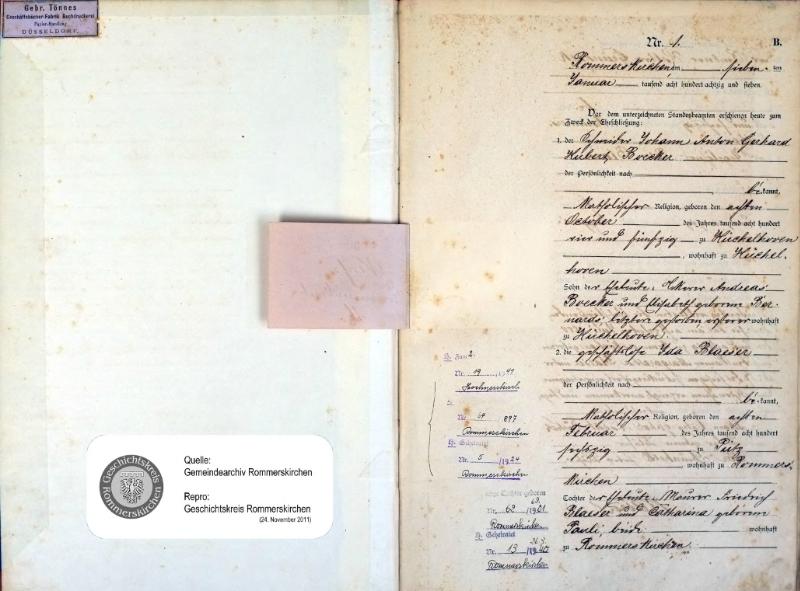 Gebr. Tönnes
Geschäftsbücher-Fabrik Buchdruckerei
Papier-Handlung
DÜSSELDORF.
Nr. 1. B.
Rommerskirchen am sieben ten
Januar tausend acht hundert achtzig und sieben
Vor dem unterzeichneten Standesbeamten erschienen heute zum
Zweck der Eheschließung:
1. der Schneider Johann Anton Gerhard
Hubert Boecker
der Persönlichkeit nach
be kannt,
katholischer Religion, geboren den achten
October des Jahres tausend acht hundert
vier und fünfzig zu Hückelhoven
, wohnhaft zu Hückel-
hoven
Sohn der Eheleute: Ackerer Andreas
Boecker und Elisabeth geborene Ber-
nards, letztere gestorben ersterer wohnhaft
zu Hückelhoven
2. die geschäftslose Ida Blaeser
der Persönlichkeit nach
be kannt,
katholischer Religion, geboren den achten
Februar des Jahres tausend acht hundert
sechszig zu Pütz
wohnhaft zu Rommers-
kirchen
Tochter der Eheleute: Maurer Friedrich
Blaeser und Catharina geborene
Pauli, beide wohnhaft
zu Rommerskirchen
Nr. 19
Nr. 64 897
Rommerskirchen
Geheiratet
Nr. 5 /1924
Rommerskirchen
Tochter geboren
Nr. 62 /1901
Rommerskirchen
Geheiratet
Nr. 13
Rommerskirchen
Geschichtskreis
Rommerskirchen
Quelle:
Gemeindearchiv Rommerskirchen
Repro:
Geschichtskreis Rommerskirchen
(24. November 2011)